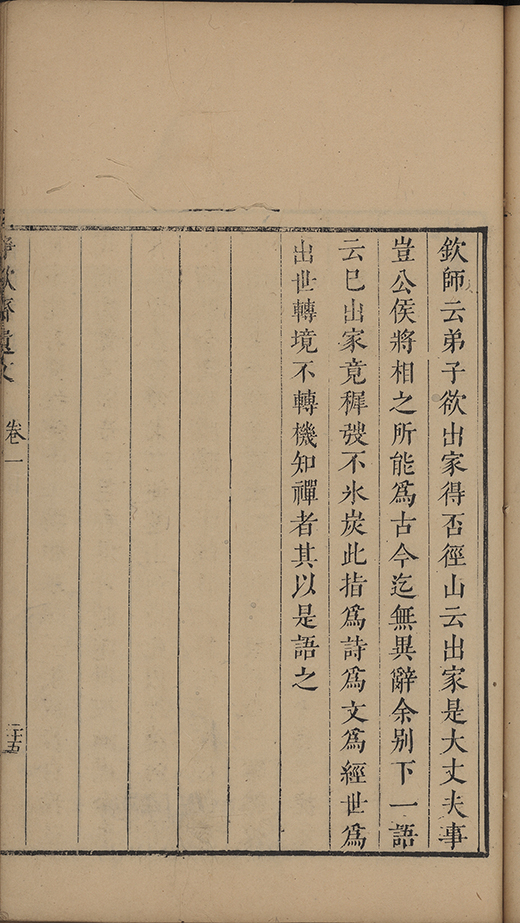 欽師云弟子欲出家得否徑山云出家是大丈夫事
豈公侯將相之所能爲古今迄無異辭余别下一語
云已出家竟穉㲉不氷炭此指爲詩爲文爲經世爲
出世轉境不轉機知禪者其以是語之
齋遺文
卷一
二十五